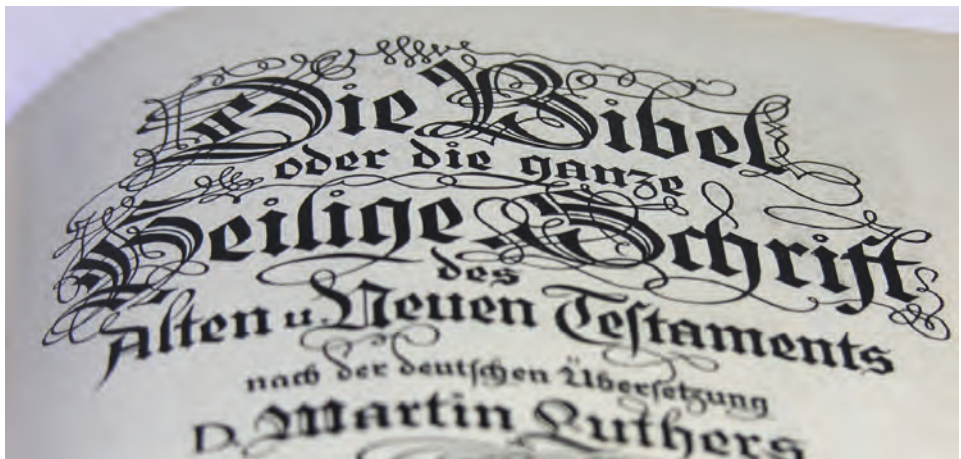 Die Bibel
oder die ganze
Heilige Schrift
des
Alten u. Neuen Teſtaments
nach der deutſchen Überſetzung
D. Martin Luthers